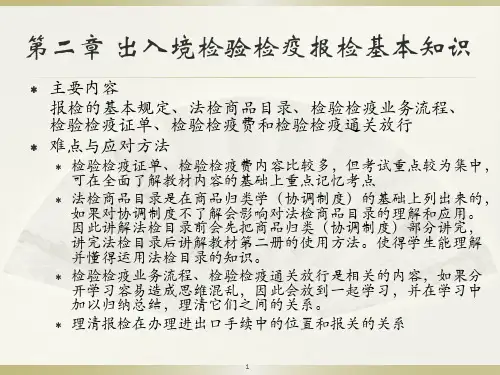 第二章 出入境检验检疫报检基本知识
* 主要内容
报检的基本规定、法检商品目录、检验检疫业务流程、
检验检疫证单、检验检疫费和检验检疫通关放行
* 难点与应对方法
* 检验检疫证单、检验检疫费内容比较多，但考试重点较为集中，
可在全面了解教材内容的基础上重点记忆考点
* 法检商品目录是在商品归类学（协调制度）的基础上列出来的，
如果对协调制度不了解会影响对法检商品目录的理解和应用。
因此讲解法检目录前会先把商品归类（协调制度）部分讲完，
讲完法检目录后讲解教材第二册的使用方法。使得学生能理解
并懂得运用法检目录的知识。
* 检验检疫业务流程、检验检疫通关放行是相关的内容，如果分
开学习容易造成思维混乱，因此会放到一起学习，并在学习中
加以归纳总结，理清它们之间的关系。
* 理清报检在办理进出口手续中的位置和报关的关系
1